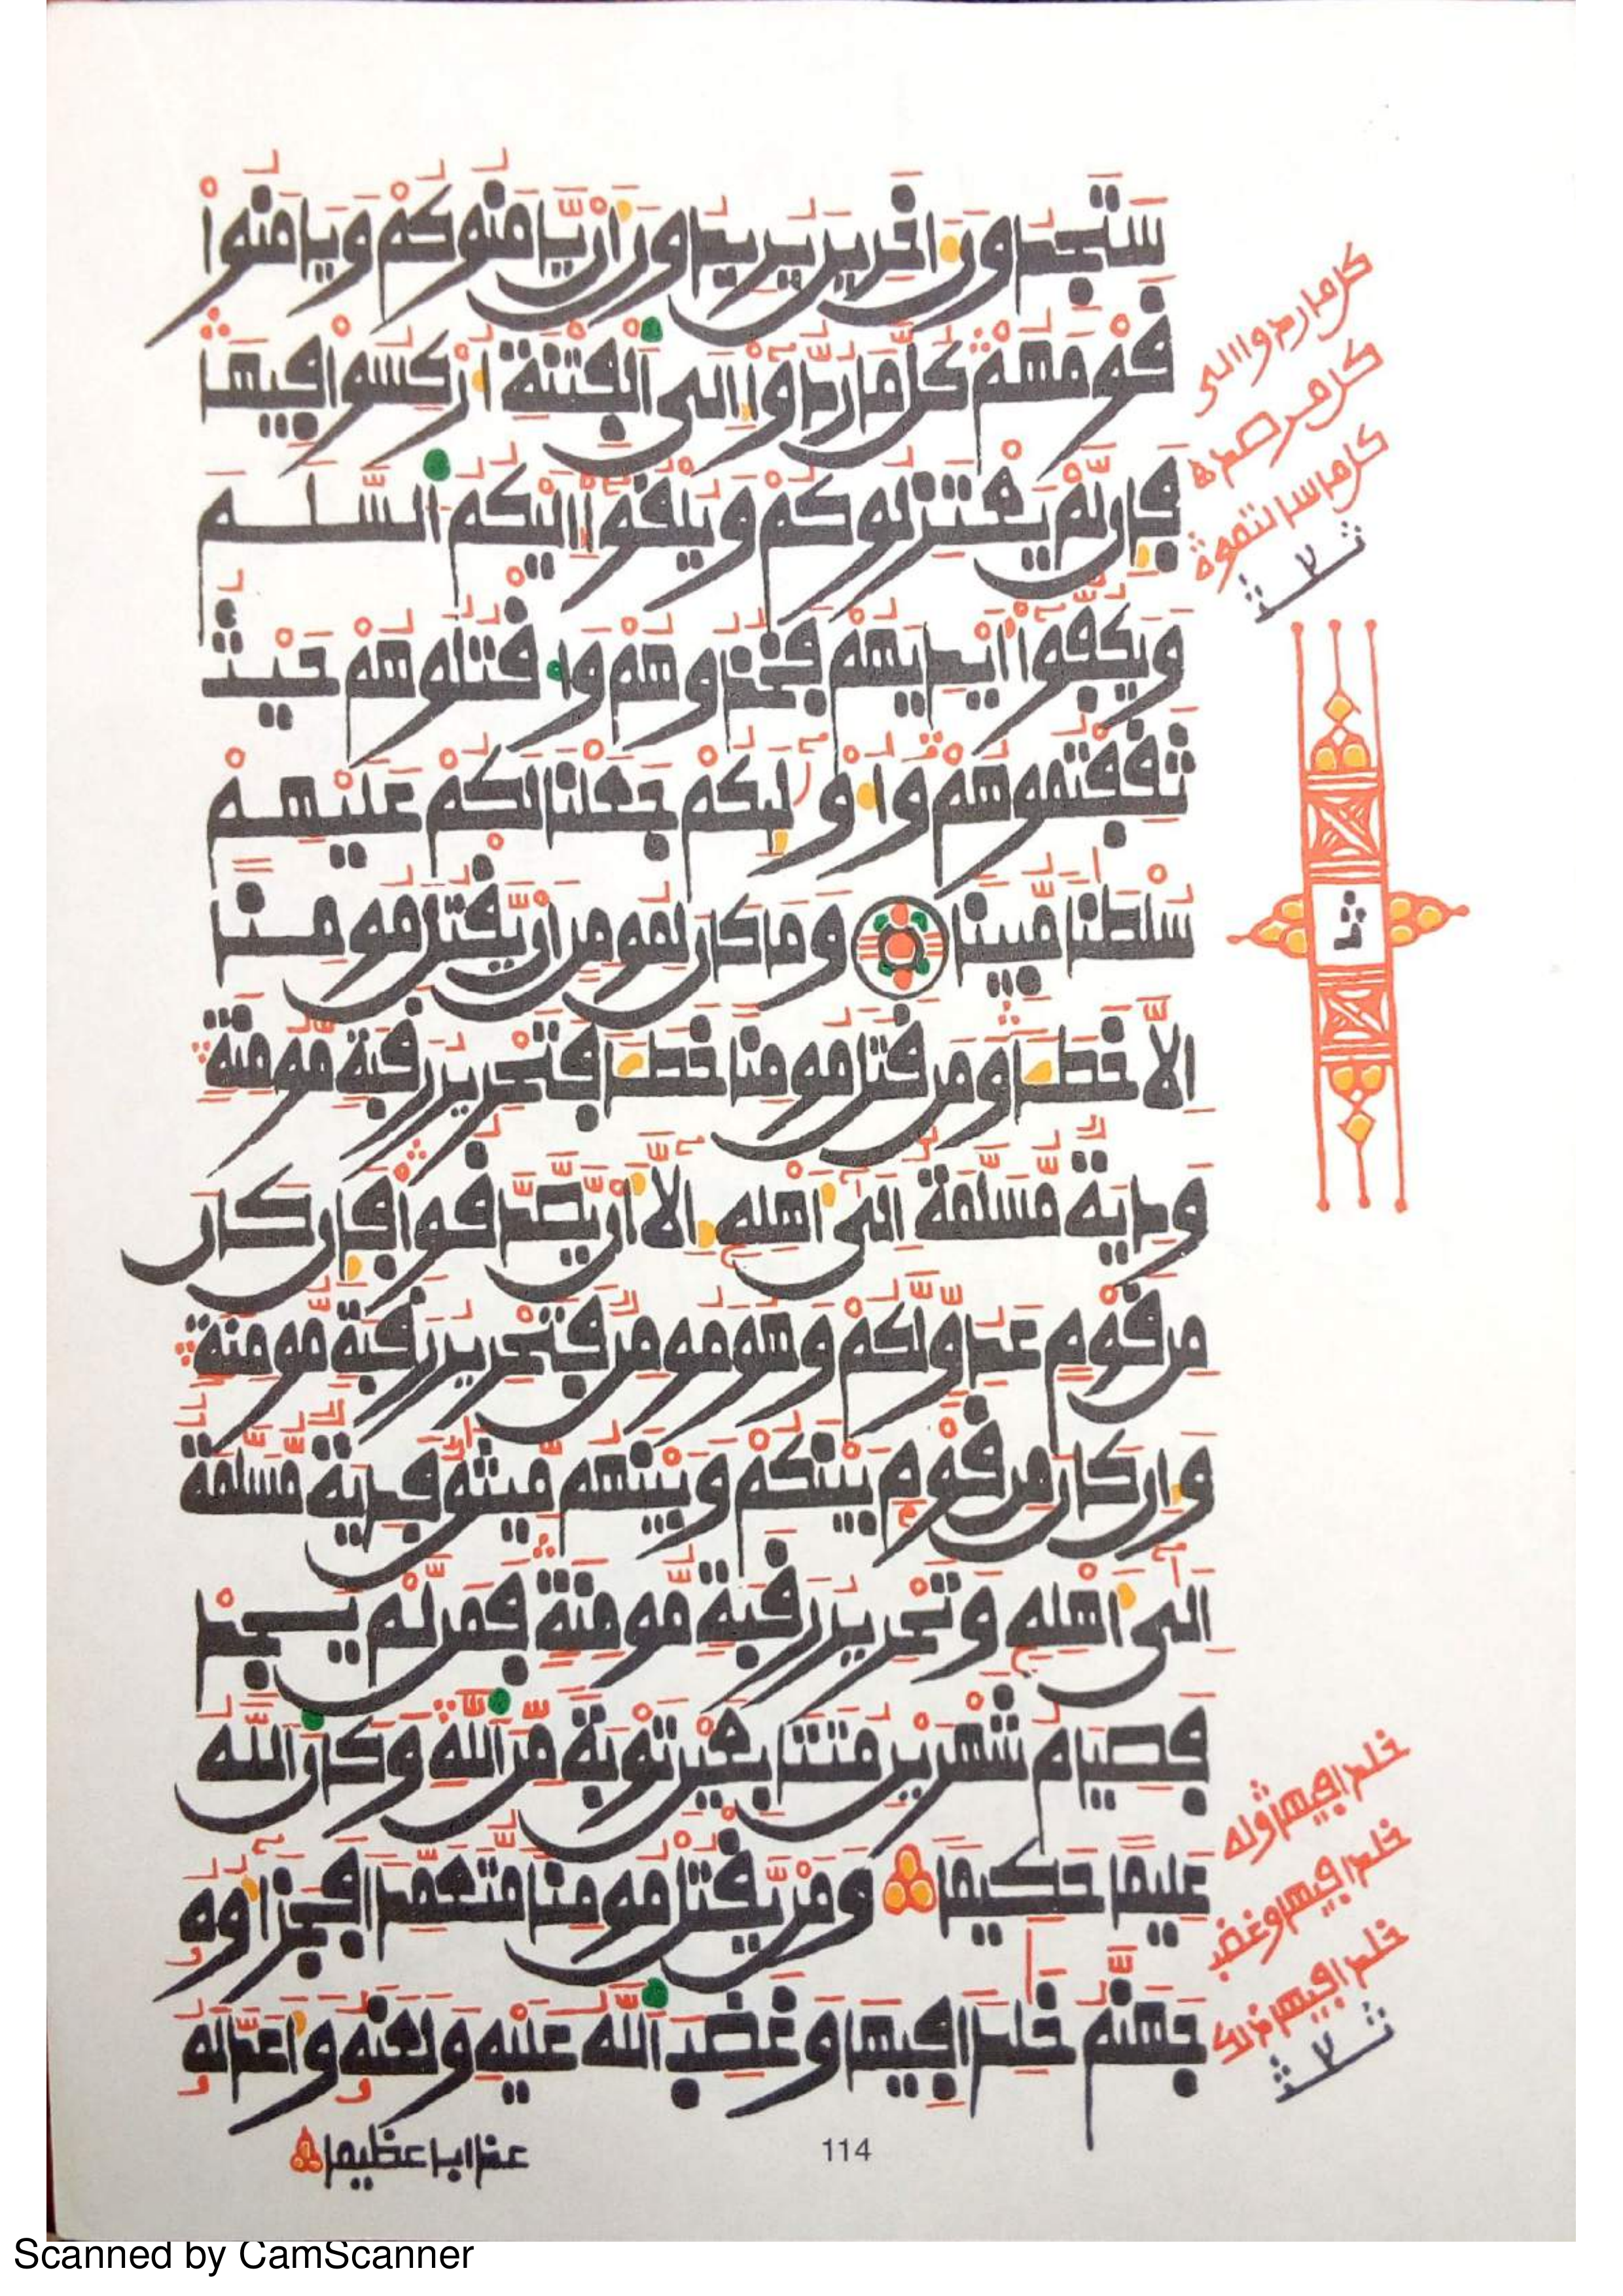 سَتَجِدُونَ ءَاخَرِينَ يُرِيدُونَ أَنْ يَّامَنُوكُمْ وَيَامَنُواْ
قَوْمَهُمْ كُلَّ مَا رُدُّواْ إِلَى اَلْفِتْنَةِ أُرْكِسُواْ فِيهَا
فَإِن لَّمْ يَعْتَزِلُوكُمْ وَيُلْقُواْ إِلَيْكُمُ اُلسَّلَمَ
وَيَكُفُّواْ أَيْدِيَهُمْ فَخُذُوهُمْ وَاقْتُلُوهُمْ حَيْثُ
ثَقِفْتُمُوهُمْ وَأُوْلَٰئِكُمْ جَعَلْنَا لَكُمْ عَلَيْهِمْ
سُلْطَٰنًا مُّبِينًا وَمَا كَانَ لِمُومِنٍ أَنْ يَّقْتُلَ مُومِنًا
اِلَّا خَطَـًٔا وَمَن قَتَلَ مُومِنًا خَطَـًٔا فَتَحْرِيرُ رَقَبَةٍ مُّومِنَةٍ
وَدِيَةٌ مُّسَلَّمَةٌ اِلَىٰ أَهْلِهِ إِلَّا أَنْ يَّصَّدَّقُواْ فَإِن كَانَ
مِن قَوْمٍ عَدُوٍّ لَّكُمْ وَهُوَ مُومِنٌ فَتَحْرِيرُ رَقَبَةٍ مُّومِنَةٍ
وَإِن كَانَ مِن قَوْمٍ بَيْنَكُمْ وَبَيْنَهُم مِّيثَٰقٌ فَدِيَةٌ مُّسَلَّمَةٌ
اِلَىٰ أَهْلِهِ وَتَحْرِيرُ رَقَبَةٍ مُّومِنَةٍ فَمَن لَّمْ يَجِدْ
فَصِيَامُ شَهْرَيْنِ مُتَتَابِعَيْنِ تَوْبَةً مِّنَ اَللَّهِ وَكَانَ اَللَّهُ
عَلِيمًا حَكِيمًا وَمَنْ يَّقْتُلْ مُومِنًا مُّتَعَمِّدًا فَجَزَآؤُهُ
جَهَنَّمُ خَٰلِدًا فِيهَا وَغَضِبَ اَللَّهُ عَلَيْهِ وَلَعَنَهُ وَأَعَدَّ لَهُ
عذابا عظيما
كل ما ردوا الى
خلدا فيها وله
خلدا فيها وغضب
خلدا فيها ذلك
114
Scanned by CamScanner